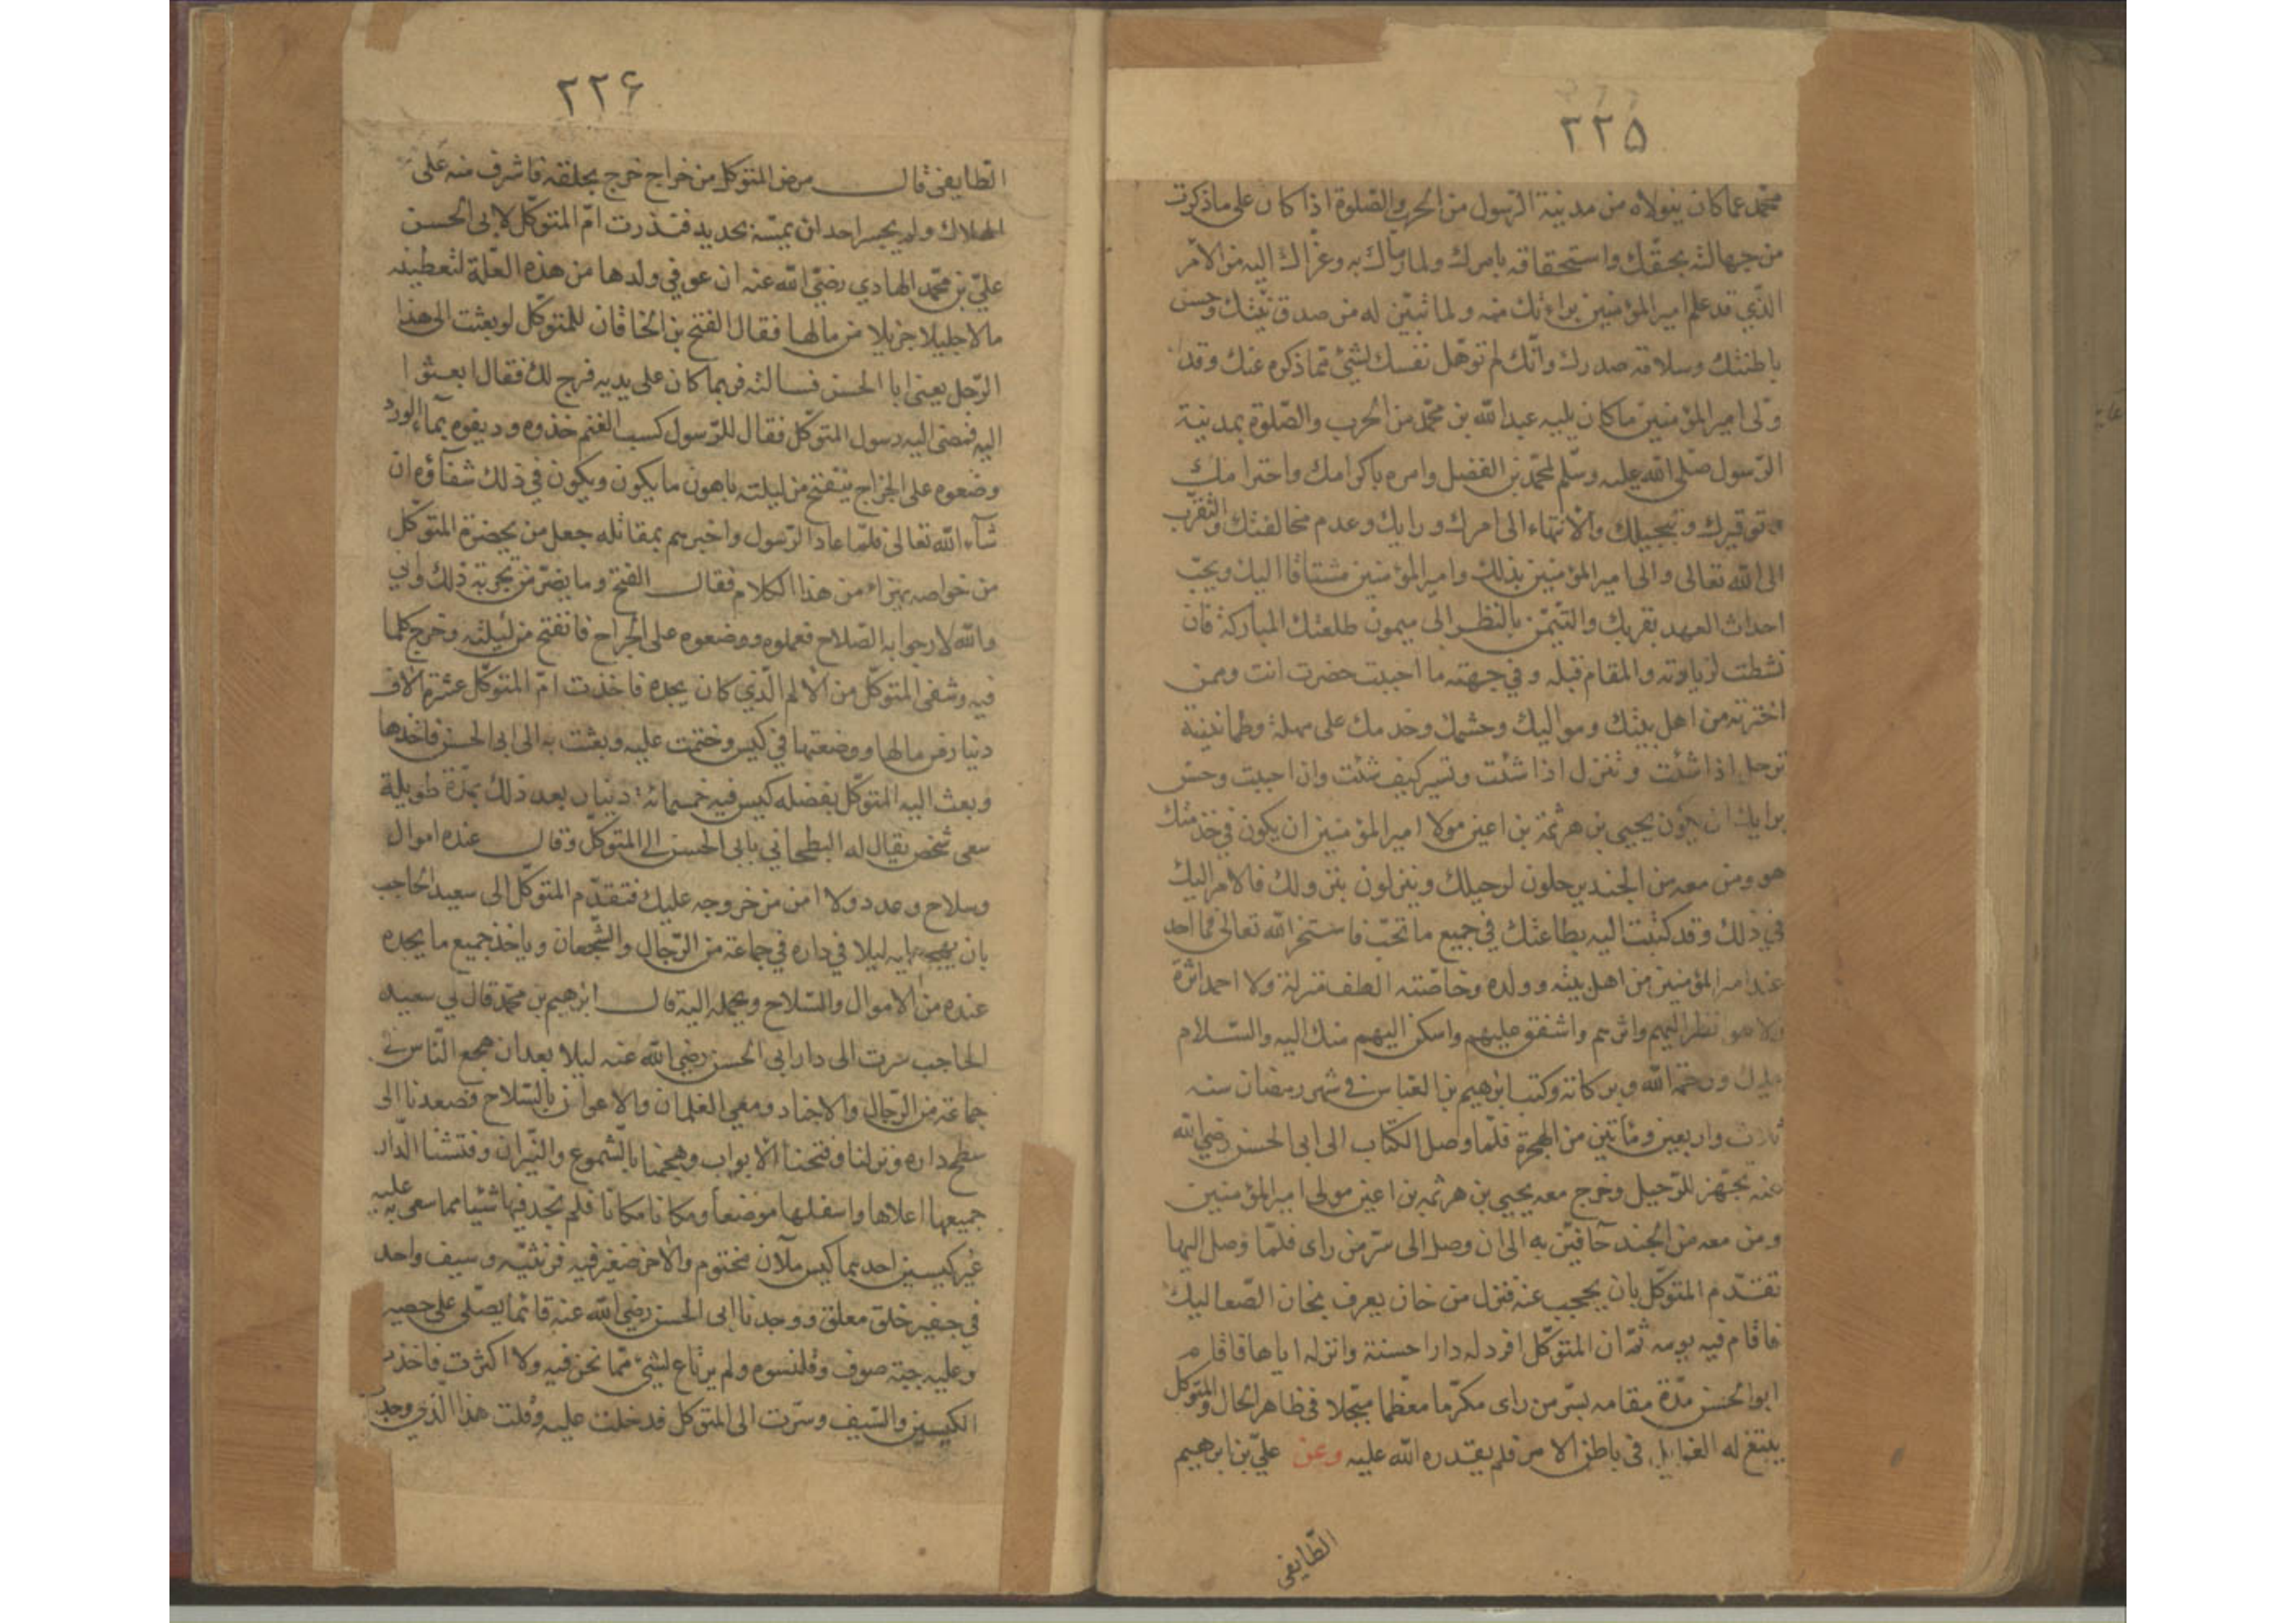 ٢٢۵
محمّد عما كان يتولاه من مدينة الرّسول من الحرب والصّلوة اذا كان على ما ذكرت
من جهالته بحقّك واستحقاقه بامرك ولما رماك به وعزاك اليه من الامر
الّذي قد علم امير المؤمنين براءتك منه ولما تبيّن له من صدق نيّتك وحسن
باطنتك وسلامة صدرك وانّك لم تؤهل نفسك لشيئ ممّا ذكره عنك وقد
ولّى امير المؤمنين ما كان يليه عبد الله بن محمّد من الحرب والصّلوة بمدينة
الرّسول صلى الله عليه وسلّم لمحمّد بن الفضل وامره باكرامك واحترامك
وتوقيرك وتبجيلك والانتهاء الى امرك ورايك وعدم مخالفتك والتقرّب
الى الله تعالى والى امير المؤمنين بذلك وامير المؤمنين مشتاقا اليك ويحبّ
احداث العهد بقربك والتيمّن بالنظر الى ميمون طلعتك المباركة فان
نشطت لزيارته والمقام قبله وفي جهته ما احببت حضرت انت ومن
اخترته من اهل بيتك ومواليك وحشمك وخدمك على مهلة وطمانينة
ترحل اذا شئت وتنزل اذا شئت وتسير كيف شئت وان احببت وحسن
برايك ان يكون يحيى بن هرثمة بن اعين مولا امير المؤمنين ان يكون في خدمتك
هو ومن معه من الجند يرحلون لرحيلك وينزلون بنزولك فالامر اليك
في ذلك وقد كتبت اليه بطاعتك في جميع ما تحبّ فاستخر الله تعالى فما احد
عند امير المؤمنين من اهل بيته وولده وخاصّته الطف منزلة ولا احمد اثرة
ولا هو انظر اليهم واثرهم واشفق عليهم واسكن اليهم منك اليه والسّلام
عليك ورحمة الله وبركاته وكتب ابرهيم بن العبّاس في شهر رمضان سنه
ثلاث واربعين ومأتين من الهجرة فلمّا وصل الكتاب الى ابى الحسن رضي الله
عنه تجهّز للرّحيل وخرج معه يحيى بن هرثمه بن اعين مولى امير المؤمنين
ومن معه من الجند حآفّين به الى ان وصل الى سرّ من راى فلمّا وصل اليها
تقدّم المتوكّل بان يحجب عنه فنزل من خان يعرف بخان الصّعاليك
فاقام فيه يومه ثمّ ان المتوكّل افرد له دارا حسنة وانزله اياها فاقام
ابو الحسن مدّة مقامه بسرّ من راى مكرّما معظّما مبجّلا فى ظاهر الحال والمتوكل
يبتغ له الغوايل فى باطن الامر فلم يقدره الله عليه وعن عليّ بن ابرهيم
الطّايفى
٢٢۶
الطّايفى قال مرض المتوكل من خراج خرج بحلقه فاشرف منه على
الهلاك ولم يجسر احد ان يمسّه بحديد فنذرت امّ المتوكّل لابى الحسن
عليّ بن محمّد الهادي رضي الله عنه ان عوفي ولدها من هذه العلّة لتعطينه
مالا جليلا جزيلا من مالها فقال الفتح بن الخاقان للمتوكّل لو بعثت الى هذا
الرّجل يعنى ابا الحسن فسالته فربما كان على يديه فرج لك فقال ابعثوا
اليه فمضى اليه رسول المتوكّل فقال للرّسول كسب الغنم خذوه وديفوه بمآء الورد
وضعوه على الخراج ينفتح من ليلته باهون ما يكون ويكون في ذلك شفآؤه ان
شآء الله تعالى فلمّا عاد الرّسول واخبرهم بمقالته جعل من بحضرة المتوكّل
من خواصه يهزاء من هذا الكلام فقال الفتح وما يضرّ من تجربة ذلك وانّي
والله لارجوا به الصّلاح فعملوه ووضعوه على الخراج فانفتح من ليلته وخرج كلما
فيه وشفى المتوكّل من الالم الّذي كان يجده فاخذت امّ المتوكّل عشرة الاف
دينار من مالها ووضعتها في كيس وختمت عليه وبعثت به الى ابى الحسن فاخذها
وبعث اليه المتوكّل بفضله كيس فيه خمسمائة دينار بعد ذلك بمدّة طويلة
سعى شخص يقال له البطحاني بابى الحسن الى المتوكّل وقال عنده اموال
وسلاح وعدد ولا امن من خروجه عليك فتقدّم المتوكّل الى سعيد الحاجب
بان يهجم عليه ليلا في داره في جماعة من الرّجال والشّجعان وياخذ جميع ما يجده
عنده من الاموال والسّلاح ويحمله اليه قال ابرهيم بن محمّد قال لي سعيد
الحاجب سرت الى دار ابى الحسن رضي الله عنه ليلا بعد ان هجع النّاس في
جماعة من الرّجال والاجناد ومعى الغلمان والاعوان بالسّلاح فصعدنا الى
سطح داره ونزلنا وفتحنا الابواب وهجمنا بالشّموع والنّيران وفتشنا الدّار
جميعها اعلاها واسفلها موضعا ومكانا مكانا فلم نجد فيها شيئا مما سعى به عليه
غير كيسين احدهما كيس ملآن مختوم والاخر صغير فيه فرنثيّه وسيف واحد
في جفير خلق معلق ووجدنا ابى الحسن رضي الله عنه قائما يصّلى على حصير
وعليه جبّة صوف وقلنسوه ولم يرتاع لشيئ ممّا نحن فيه ولا اكترث فاخذت
الكيسين والسّيف وسرت الى المتوكل فدخلت عليه وقلت هذا الّذي وجد